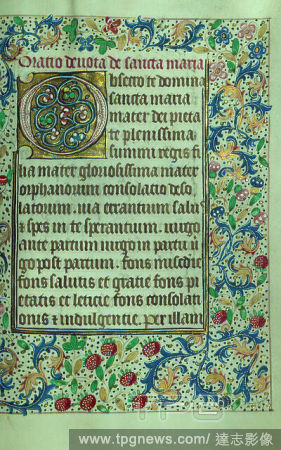 Oratio deuota de sancta maria
Obsecro te domina
sancta maria
mater dei pieta
te plenissima
summi regis fi
lia mater gloriosissima mater
orphanorum consolatio deso
latorum. uia errantium salus
& spes in te sperantium. uirgo
ante partum uirgo in partu uir
go post partum. fons misericordie
fons salutis et gratie fons pi
etatis et leticie fons consolati
onis & indulgentie. Per illam
www.tpgnews.com/ 達志影像